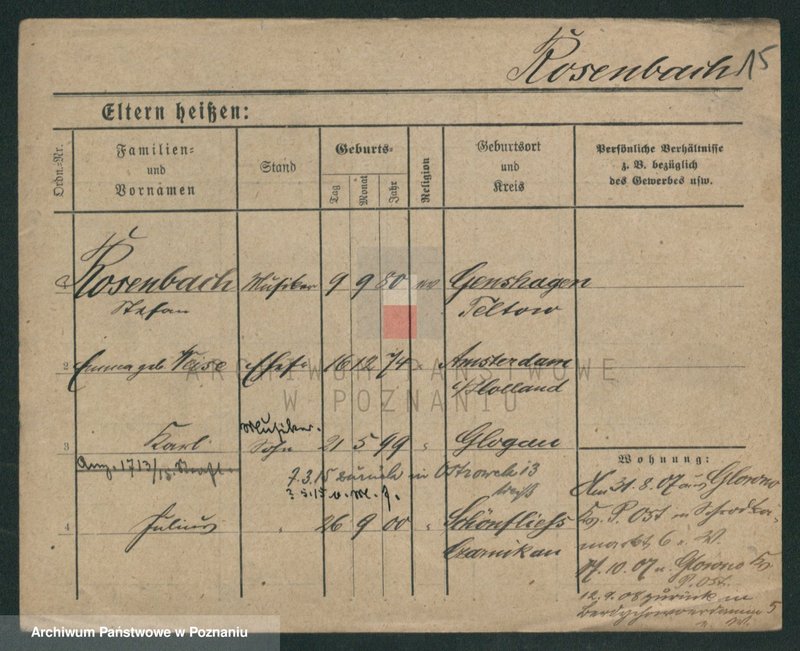 Rosenbach 15
Eltern heißen:
Ordn.=Nr.
Familien=
und
Vornamen
Stand
Geburts=
Tag
Monat
Jahr
Religion
Geburtsort
und
Kreis
Persönliche Verhältnisse
z. B. bezüglich
des Gewerbes usw.
1 Rosenbach Musiker 9 9 80 ev Genshagen
Stefan Teltow
2 Emma geb. Weise Ehefr 16 12 74 " Amsterdam
i/Holland
ARCHIWUM PAŃSTWOWE
W POZNANIU
Musiker
3 Karl Sohn 21 5 99 " Glogau
7.3.15 zurück in Ostrowek 13
4 Julius " 26 9 00 " Schönfliess
Czarnikau
Wohnung:
Am 31.8.07 aus Glowno
Kr. P. Ost n Schrodka
markt 6 v. W.
17.10.07 n. Glowno Kr
P. Ost.
12.9.08 zurück in
Archiwum Państwowe w Poznaniu